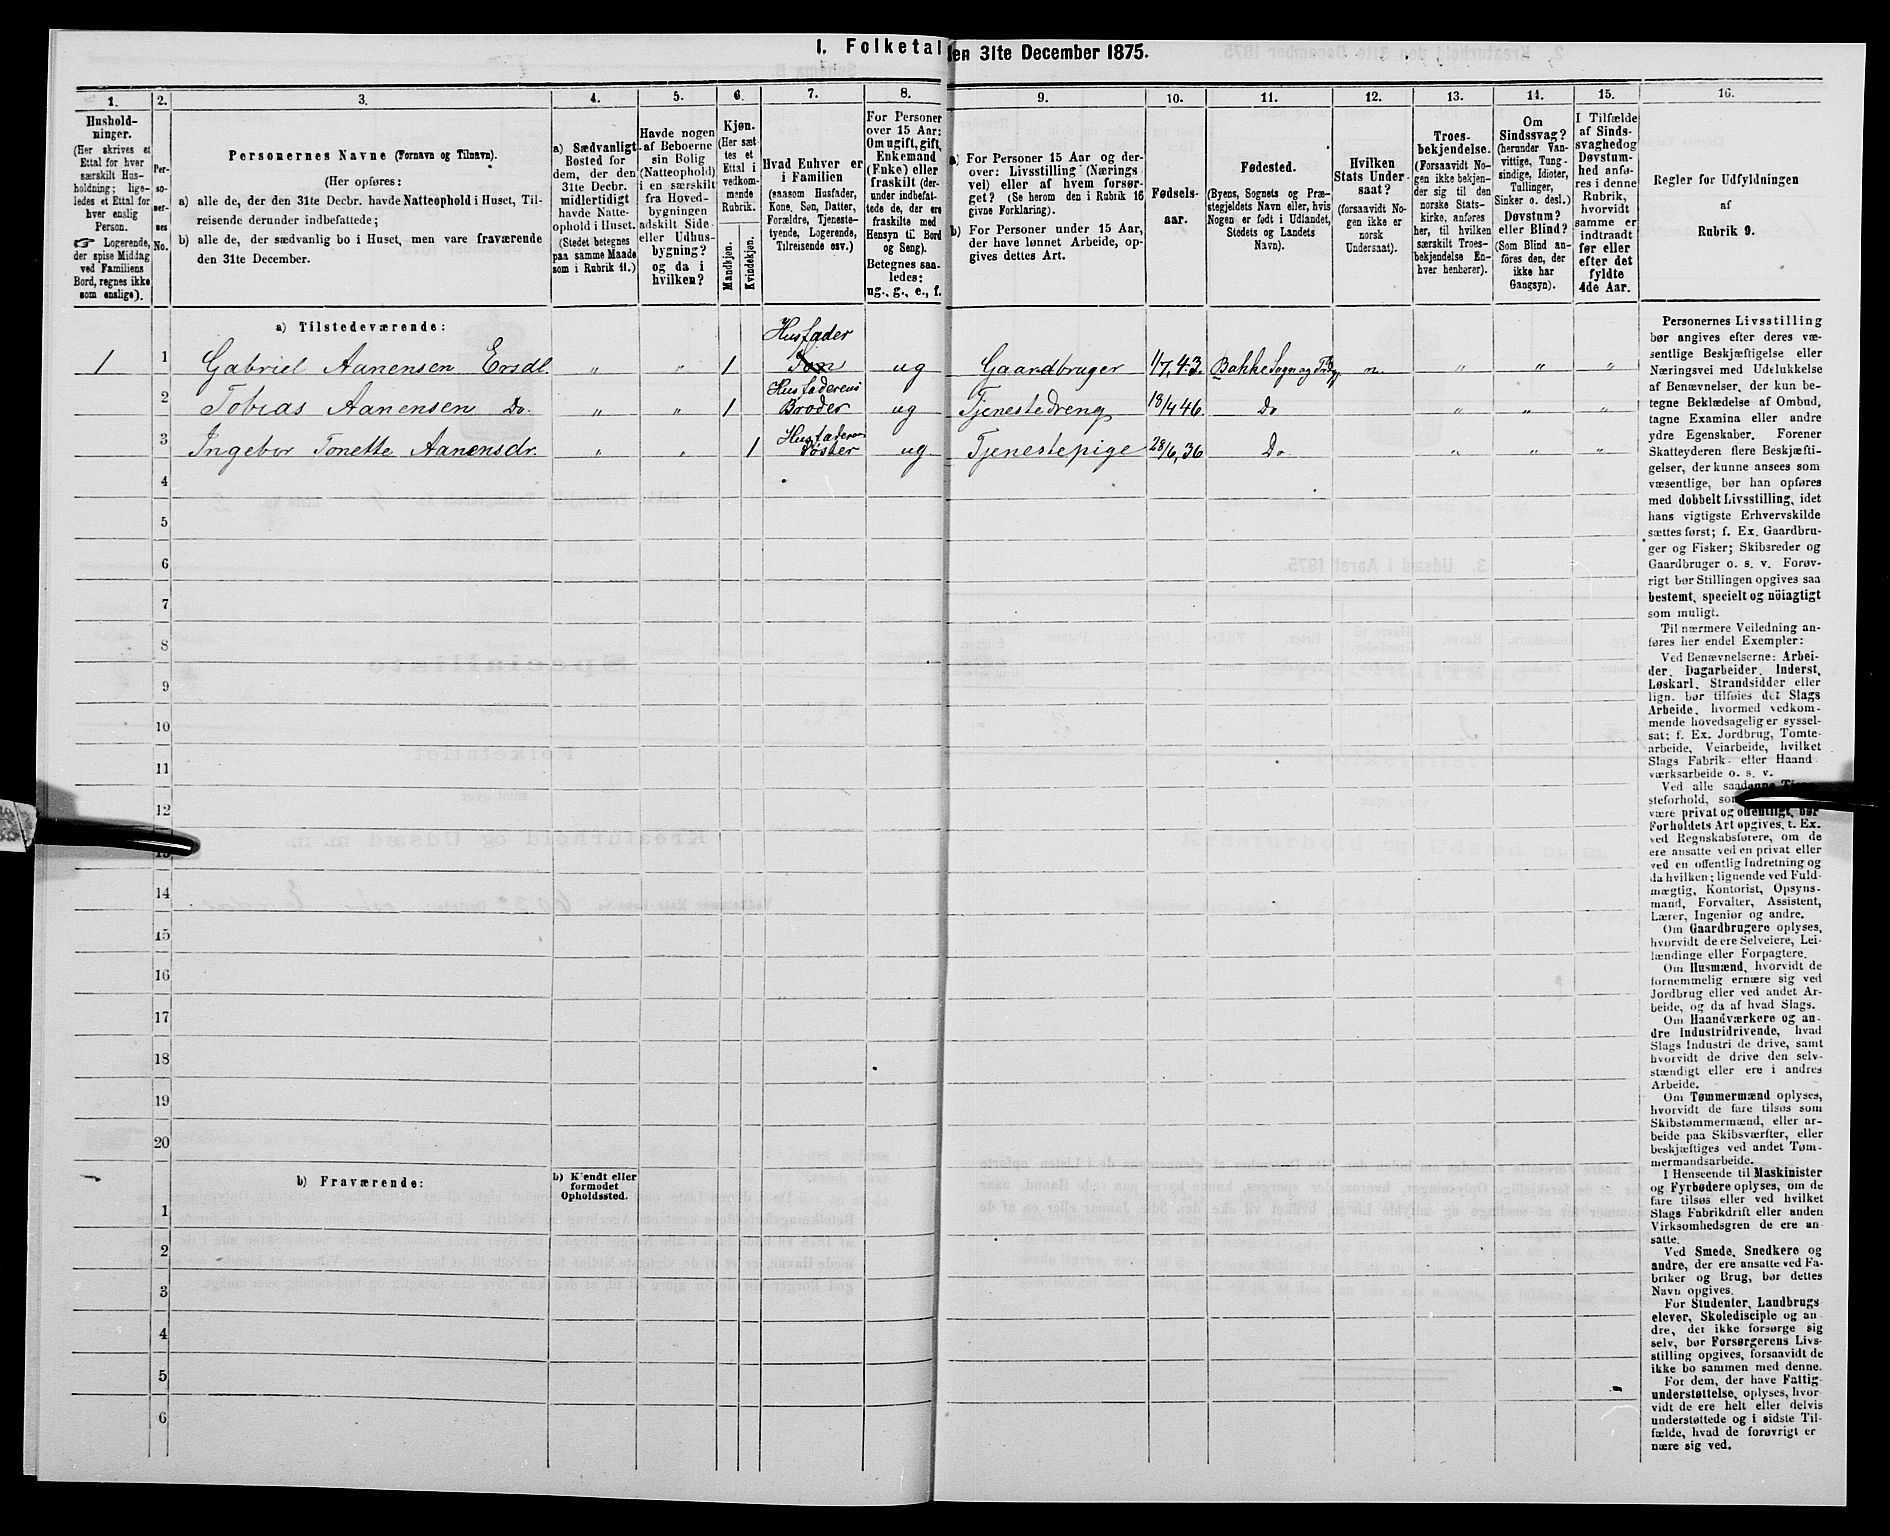 1. Folketal den 31te December 1875.
1.
2.
3.
4.
5.
6.
7.
8.
9.
10.
11.
12.
13.
14.
15.
16.
Hushold-
ninger.
(Her skrives et
Ettal for hver
særskilt Hus-
holdning; lige-
ledes et Ettal for
hver enslig
Person.
☞ Logerende,
der spise Middag
ved Familiens
Bord, regnes ikke
som enslige).
Per-
so-
ner-
nes
No.
Personernes Navne (Fornavn og Tilnavn).
(Her opføres:
a) alle de, der den 31te Decbr. havde Natteophold i Huset, Til-
reisende derunder indbefattede;
b) alle de, der sædvanlig bo i Huset, men vare fraværende
den 31te December.
a) Sædvanligt
Bosted for
dem, der den
31te Decbr.
midlertidigt
havde Natte-
ophold i Huset.
(Stedet betegnes
paa samme Maade
som i Rubrik 11.)
Havde nogen
af Beboerne
sin Bolig
(Natteophold)
i en særskilt
fra Hoved-
bygningen
adskilt Side-
eller Udhus-
bygning?
og da i
hvilken?
Kjøn.
(Her sæt-
tes et
Ettal i
vedkom-
mende
Rubrik.
Mandkjøn.
Kvindekjøn.
Hvad Enhver er
i Familien
(saasom Husfader,
Kone, Søn, Datter,
Forældre, Tjeneste-
tyende, Logerende,
Tilreisende osv.)
For Personer
over 15 Aar:
Om ugift, gift,
Enkemand
(Enke) eller
fraskilt (der-
under indbefat-
tede de, der ere
fraskilte med
Hensyn til Bord
og Seng).
Betegnes saa-
ledes:
ug., g., e., f.
a) For Personer 15 Aar og der-
over: Livsstilling (Nærings
vei) eller af hvem forsør-
get? (Se herom den i Rubrik 16
givne Forklaring).
b) For Personer under 15 Aar,
der have lønnet Arbeide, op-
gives dettes Art.
Fødsels-
aar.
Fødested.
(Byens, Sognets og Præ-
stegjeldets Navn eller, hvis
Nogen er født i Udlandet,
Stedets og Landets
Navn).
Hvilken
Stats Under-
saat?
(forsaavidt No-
gen ikke er
norsk
Undersaat).
Troes-
bekjendelse.
(Forsaavidt No-
gen ikke bekjen-
der sig til den
norske Stats-
kirke, anføres
her, til hvilken
særskilt Troes-
bekjendelse En-
hver henhører).
Om
Sindssvag?
(herunder Van-
vittige, Tung-
sindige, Idioter,
Tullinger,
Sinker o. desl.)
Døvstum?
eller Blind?
(Som Blind an-
føres den, der
ikke har
Gangsyn).
I Tilfælde
af Sinds-
svaghed og
Døvstum-
hed anfø-
res i denne
Rubrik,
hvorvidt
samme er
indtraadt
før eller
efter det
fyldte
4de Aar.
Regler for Udfyldningen
af
Rubrik 9.
a) Tilstedeværende:
1 1 Gabriel Aanensen Ersdl. „ „ 1 Husfader Søn ug Gaardbruger 1/7, 43. Bakke Sogn og n. „ „ „
2 Tobias Aanensen Do. „ „ 1 Husfaderens Broder ug Tjenestedreng 18/4 46. Do „ „ „
3 Ingebor Tonette Aanensdr. „ „ 1 Husfaderens Søster ug Tjenestepige 28/6, 36 Do. „ „ „
4
5
6
7
8
9
10
11
12
13
14
15
16
17
18
19
20
b) Fraværende:
b) Kjendt eller
formodet
Opholdssted.
1
2
3
4
5
6
Personernes Livsstilling
bør angives efter deres væ-
sentlige Beskjæftigelse eller
Næringsvei med Udelukkelse
af Benævnelser, der kun be-
tegne Beklædelse af Ombud,
tagne Examina eller andre
ydre Egenskaber. Forener
Skatteyderen flere Beskjæfti-
gelser, der kunne ansees som
væsentlige, bør han opføres
med dobbelt Livsstilling, idet
hans vigtigste Erhvervskilde
sættes først; f. Ex. Gaardbru-
ger og Fisker; Skibsreder og
Gaardbruger o. s. v. Forøv-
rigt bør Stillingen opgives saa
bestemt, specielt og nöiagtigt
som muligt.
Til nærmere Veiledning an-
føres her endel Exempler:
Ved Benævnelserne: Arbei-
der, Dagarbeider, Inderst,
Løskarl, Strandsidder eller
lign. bør tilføies det Slags
Arbeide, hvormed vedkom-
mende hovedsagelig er syssel-
sat; f. Ex. Jordbrug, Tomte-
arbeide, Veiarbeide, hvilket
Slags Fabrik- eller Haand
værksarbeide o. s. v.
Ved alle saadanne Tjene-
steforhold, som
være privat og offentligt, bør
Forholdets Art opgives, t. Ex.
ved Regnskabsførere, om de
ere ansatte ved en privat eller
ved en offentlig Indretning og
da hvilken; lignende ved Fuld-
mægtig, Kontorist, Opsyns-
mand, Forvalter, Assistent,
Lærer, Ingeniør og andre.
Om Gaardbrugere oplyses,
hvorvidt de ere Selveiere, Lei-
lændinge eller Forpagtere.
Om Husmænd, hvorvidt de
fornemmelig ernære sig ved
Jordbrug eller ved andet Ar-
beide, og da af hvad Slags.
Om Haandværkere og an-
dre Industridrivende, hvad
Slags Industri de drive, samt
hvorvidt de drive den selv-
stændigt eller ere i andres
Arbeide.
Om Tømmermænd oplyses,
hvorvidt de fare tilsøs som
Skibstømmermænd, eller ar-
beide paa Skibsværfter, eller
beskjæftiges ved andet Tøm-
mermandsarbeide.
I Henseende til Maskinister
og Fyrbødere oplyses, om de
fare tilsøs eller ved hvilket
Slags Fabrikdrift eller anden
Virksomhedsgren de ere an-
satte.
Ved Smede, Snedkere og
andre, der ere ansatte ved Fa-
briker og Brug, bør dettes
Navn opgives.
For Studenter, Landbrugs
elever, Skoledisciple og an-
dre, det ikke forsørge sig
selv, bør Forsørgerens Livs-
stilling opgives, forsaavidt de
ikke bo sammen med denne.
For dem, der have Fattig-
understøttelse, oplyses, hvor-
vidt de ere helt eller delvis
understøttede og i sidste Til-
fælde, hvad de forøvrigt er
nære sig ved.